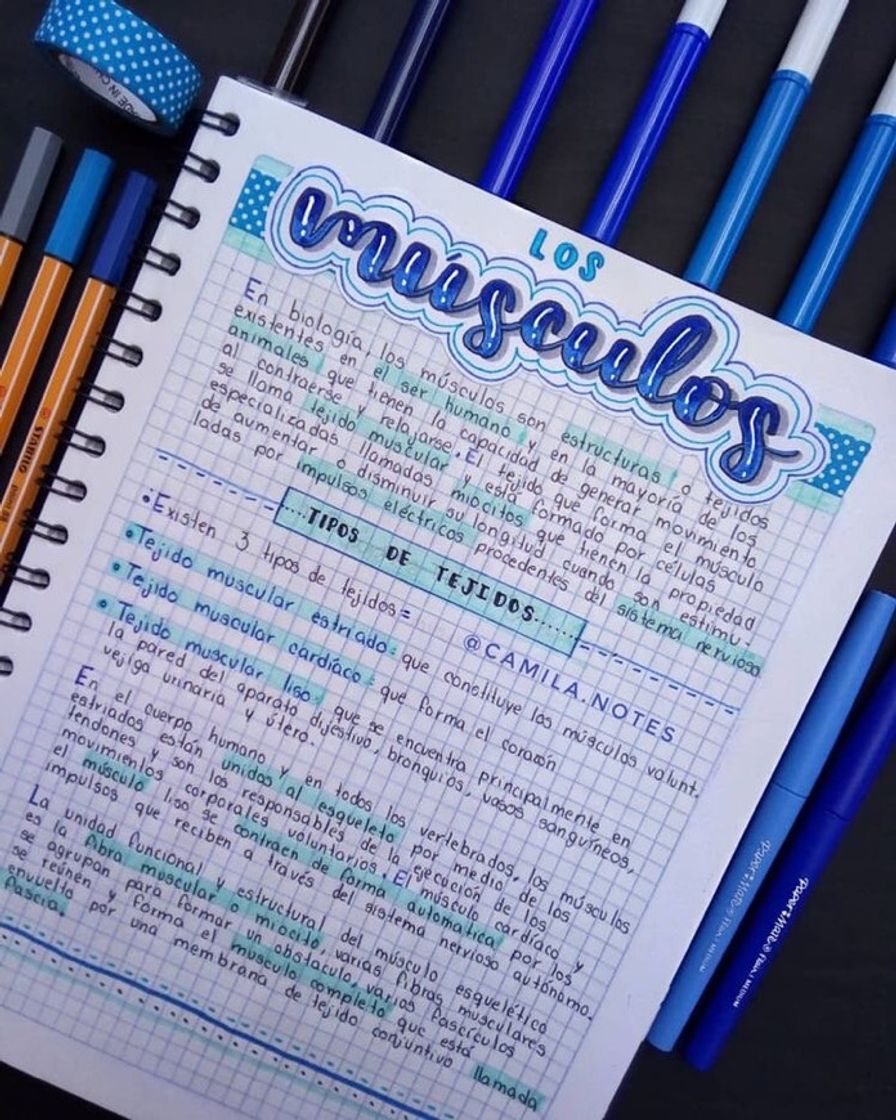 LOS
músculos
En biología, los músculos son estructuras o tejidos
existentes en el ser humano y en la mayoría de los
animales que tienen la capacidad de generar movimiento
al contraerse y relajarse. El tejido que forma el músculo
se llama tejido muscular y está formado por células
especializadas llamadas miocitos que tienen la propiedad
de aumentar o disminuir su longitud cuando son estimu-
ladas por impulsos eléctricos procedentes del sistema nervioso
....TIPOS DE TEJIDOS......
@CAMILA.NOTES
•Existen 3 tipos de tejidos=
•Tejido muscular estriado: que constituye los músculos volunt.
•Tejido muscular cardíaco: que forma el corazón
•Tejido muscular liso: que se encuentra principalmente en
la pared del aparato digestivo, bronquios, vasos sanguíneos,
vejiga urinaria y útero.
En el cuerpo humano y en todos los vertebrados, los músculos
estriados están unidos al esqueleto por medio de los
tendones y son los responsables de la ejecución de los
movimientos corporales voluntarios. El músculo cardíaco y
el músculo liso se contraen de forma automática por los
impulsos que reciben a través del sistema nervioso autónomo.
La unidad funcional y estructural del músculo esquelético
es la fibra muscular o miocito, varias fibras musculares
se agrupan para formar un obstáculo, varios fascículos
se reúnen y forma el músculo completo que está
envuelto por una membrana de tejido conjuntivo llamada
fascia.
STABILO
Paper:Mate Flair. MEDIUM
Paper:Mate Flair. MEDIUM